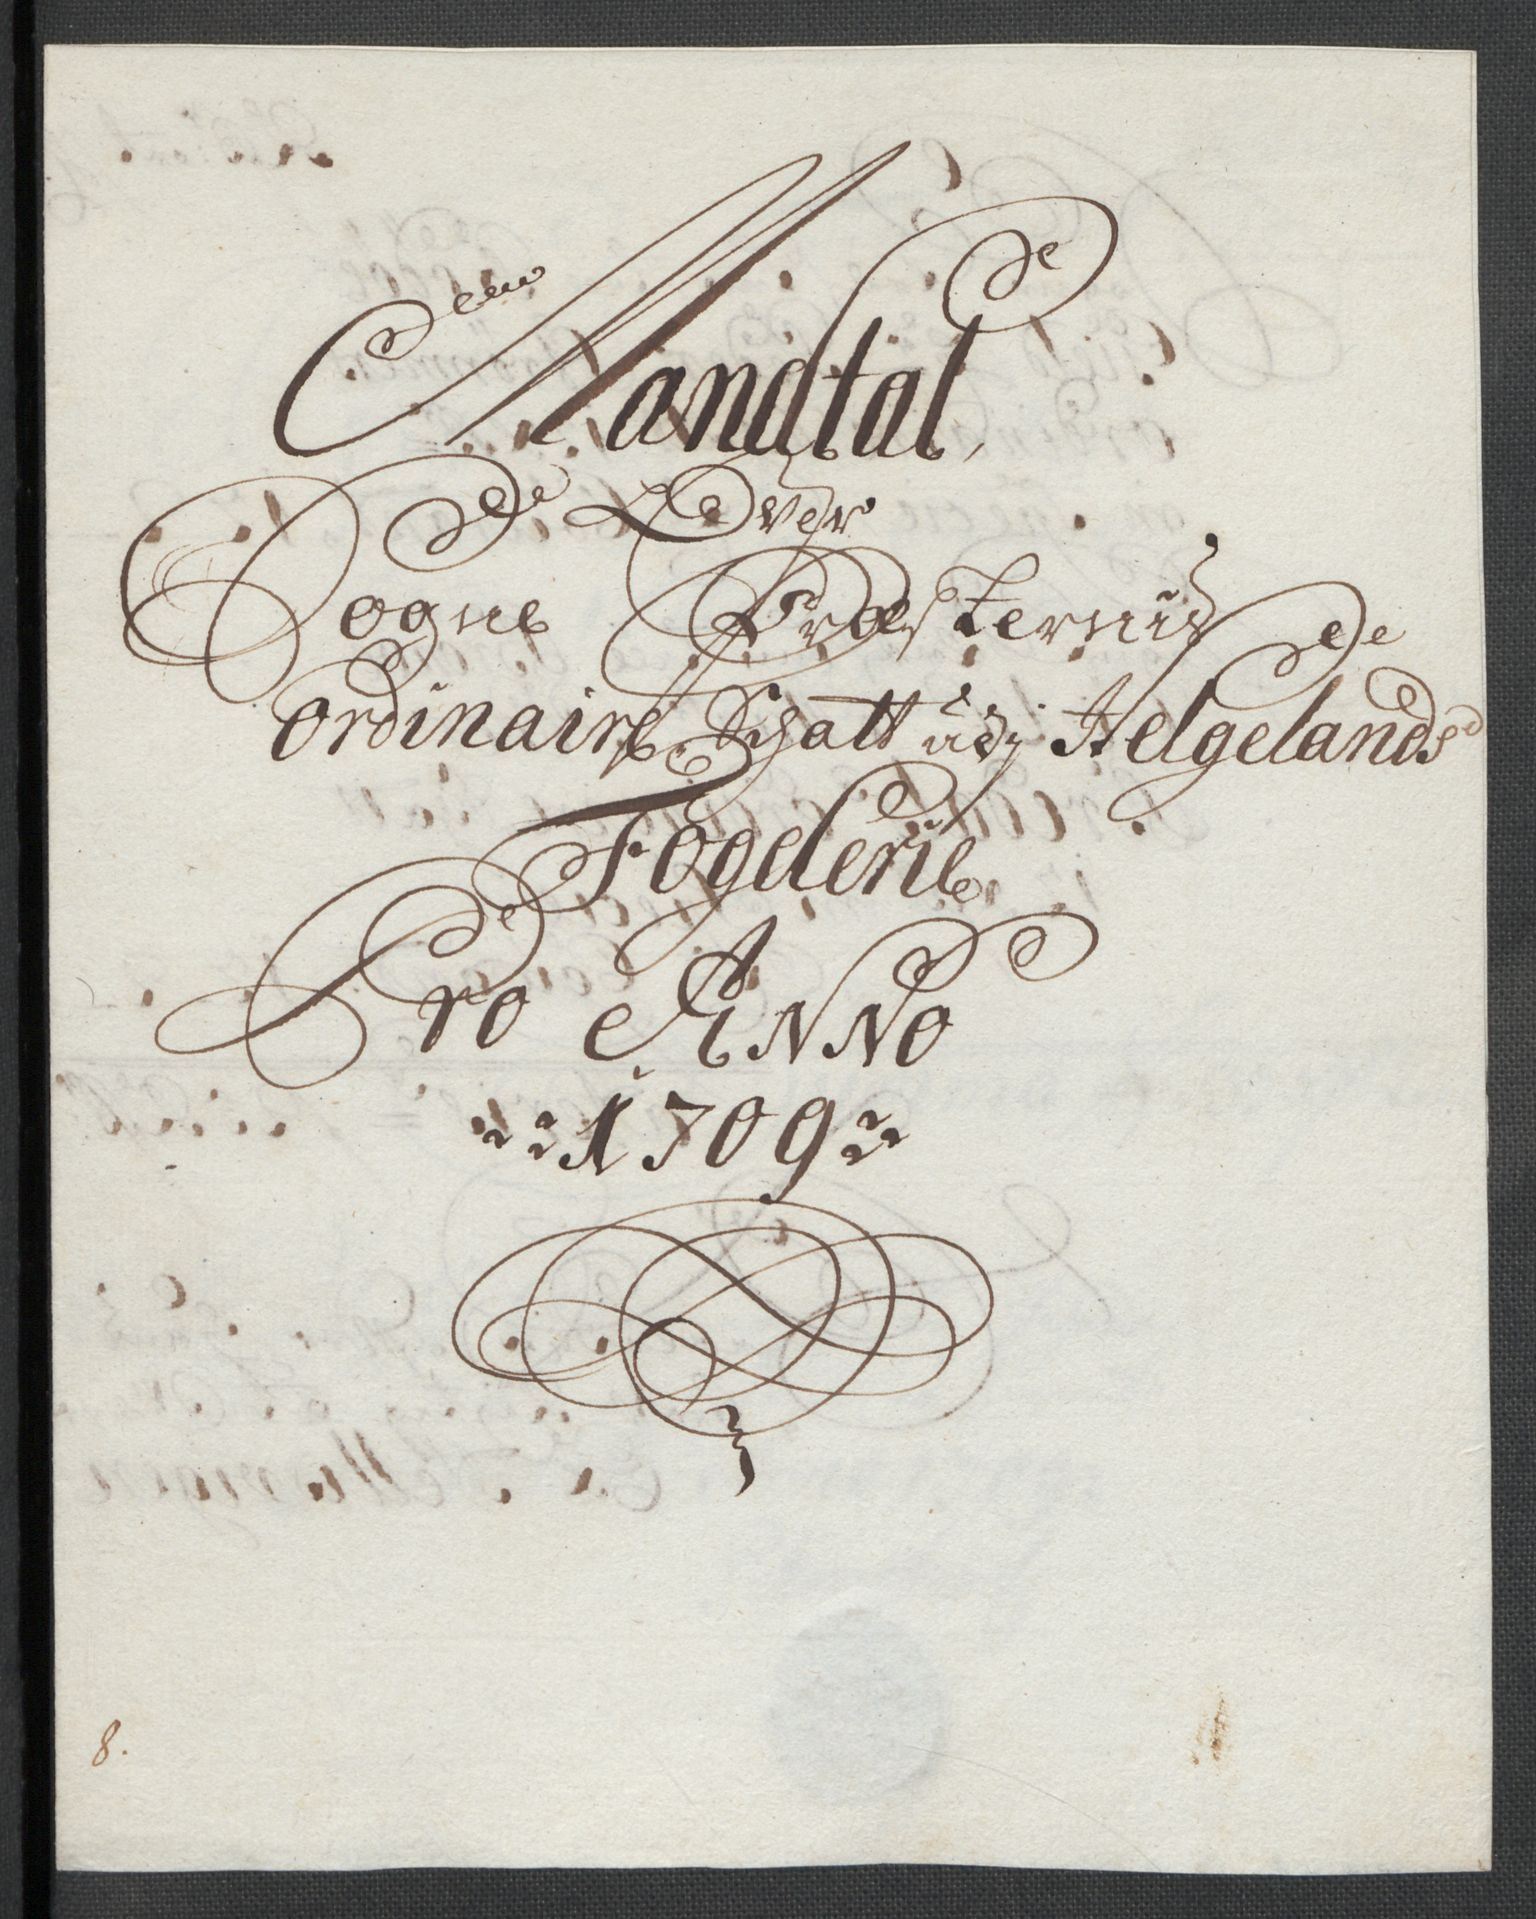 Mandtal
Over
Sogne Præsternis
Ordinaire Schatt udj Helgelands
Fogderie
Pro Anno
1709
8.